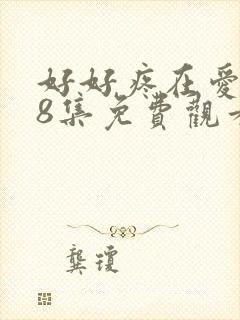 好好疼在愛
8集免費觀
龔瓊